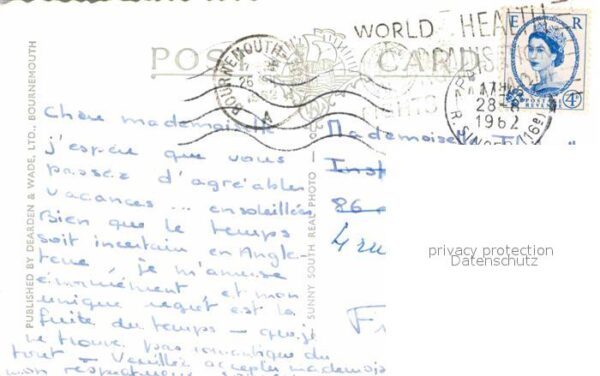 POST CARD
WORLD HEALTH
BOURNEMOUTH
A
E R
POSTAGE
4D
28
1962
PUBLISHED BY DEARDEN & WADE, LTD., BOURNEMOUTH
SUNNY SOUTH REAL PHOTO
Chère mademoiselle
j'espère que vous
passez d'agréables
vacances ... ensoleillées
Bien que le temps
soit incertain en Angle-
terre je m'amuse
énormément et mon
unique regret est la
fuite du temps – que je
ne trouve pas romantique du
tout – Veuillez accepter mademoise
mon
Mademoiselle
Inst
86
4 rue
F
privacy protection
Datenschutz